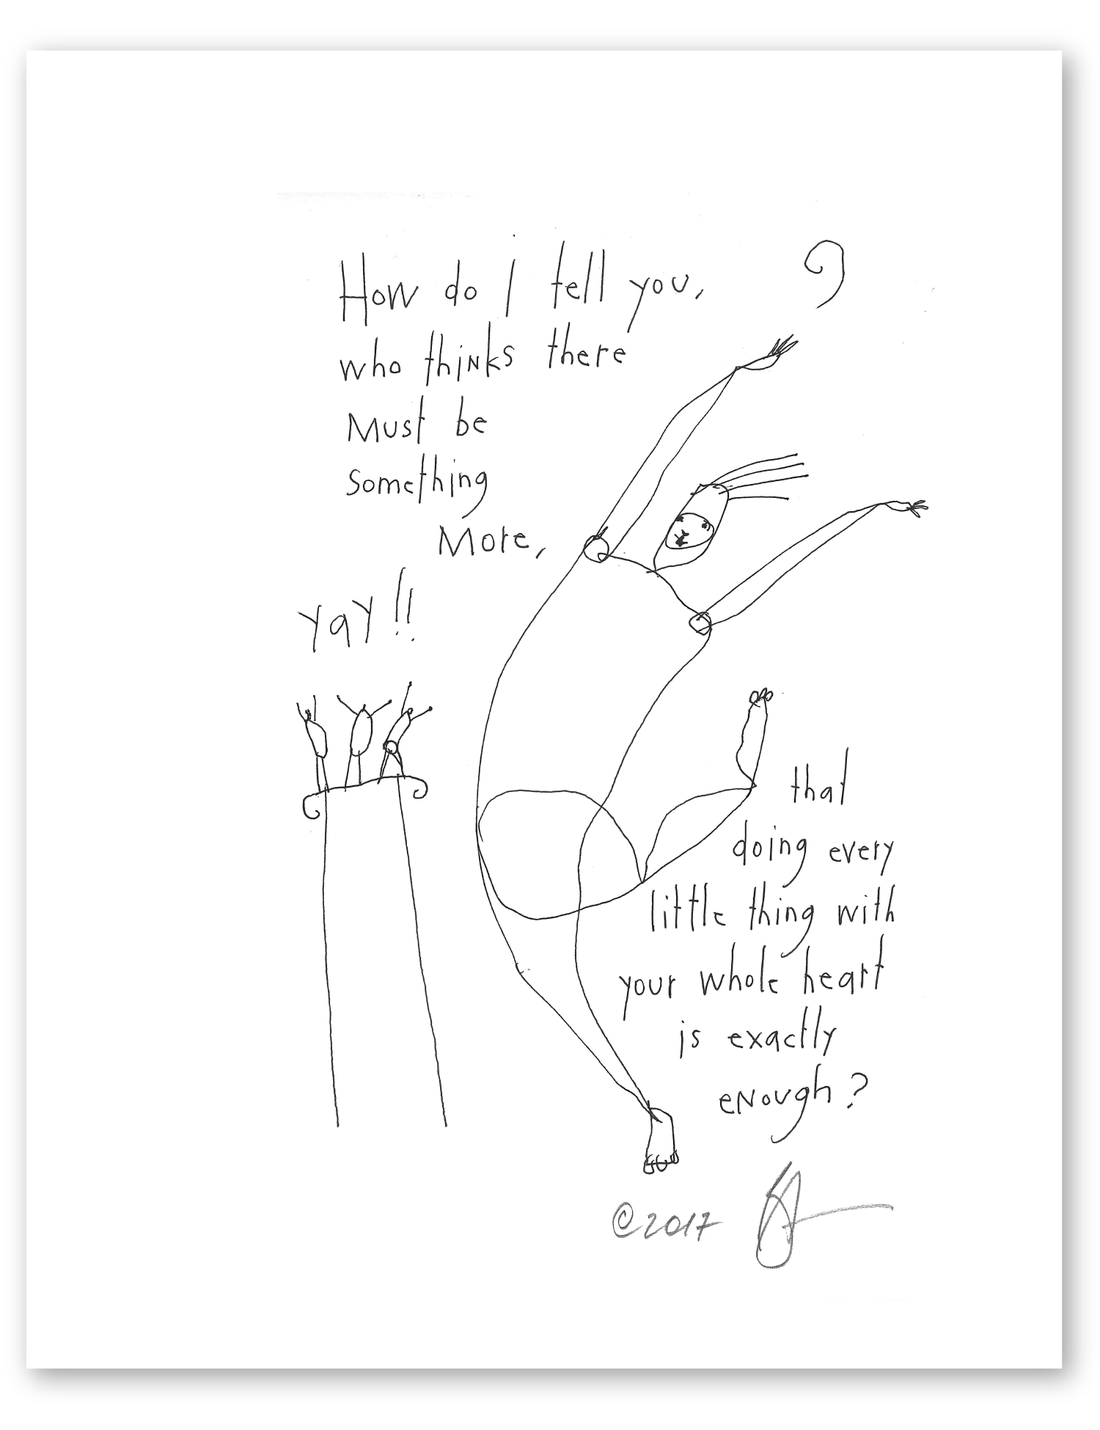 How do I tell you,
who thinks there
Must be
something
More,
yay!!
that
doing every
little thing with
your whole heart
is exactly
enough?
©2017